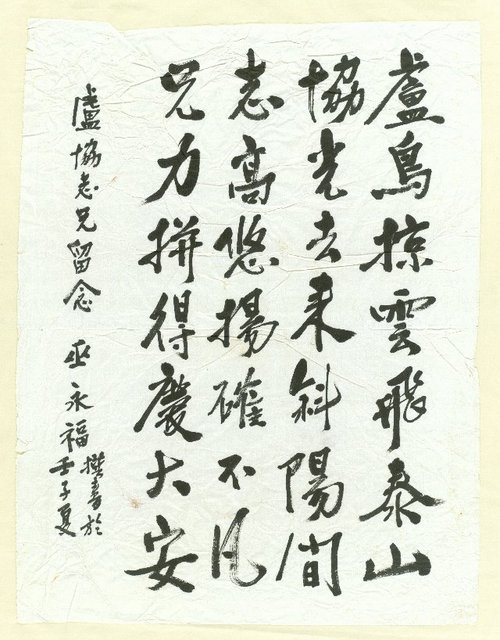 盧鳥掠雲飛泰山
協光去來斜陽間
志高悠揚確不凡
兄力拼得慶大安
盧協志兄留念 巫永福
撰書於
壬子夏